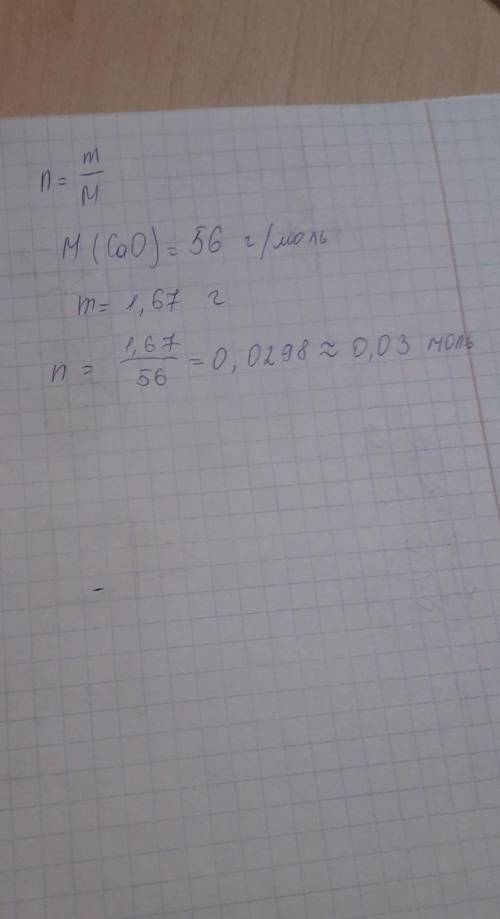 n = m/M
M (CaO) = 56 г/моль
m = 1,67 г
n = 1,67/56 = 0,0298 ≈ 0,03 моль